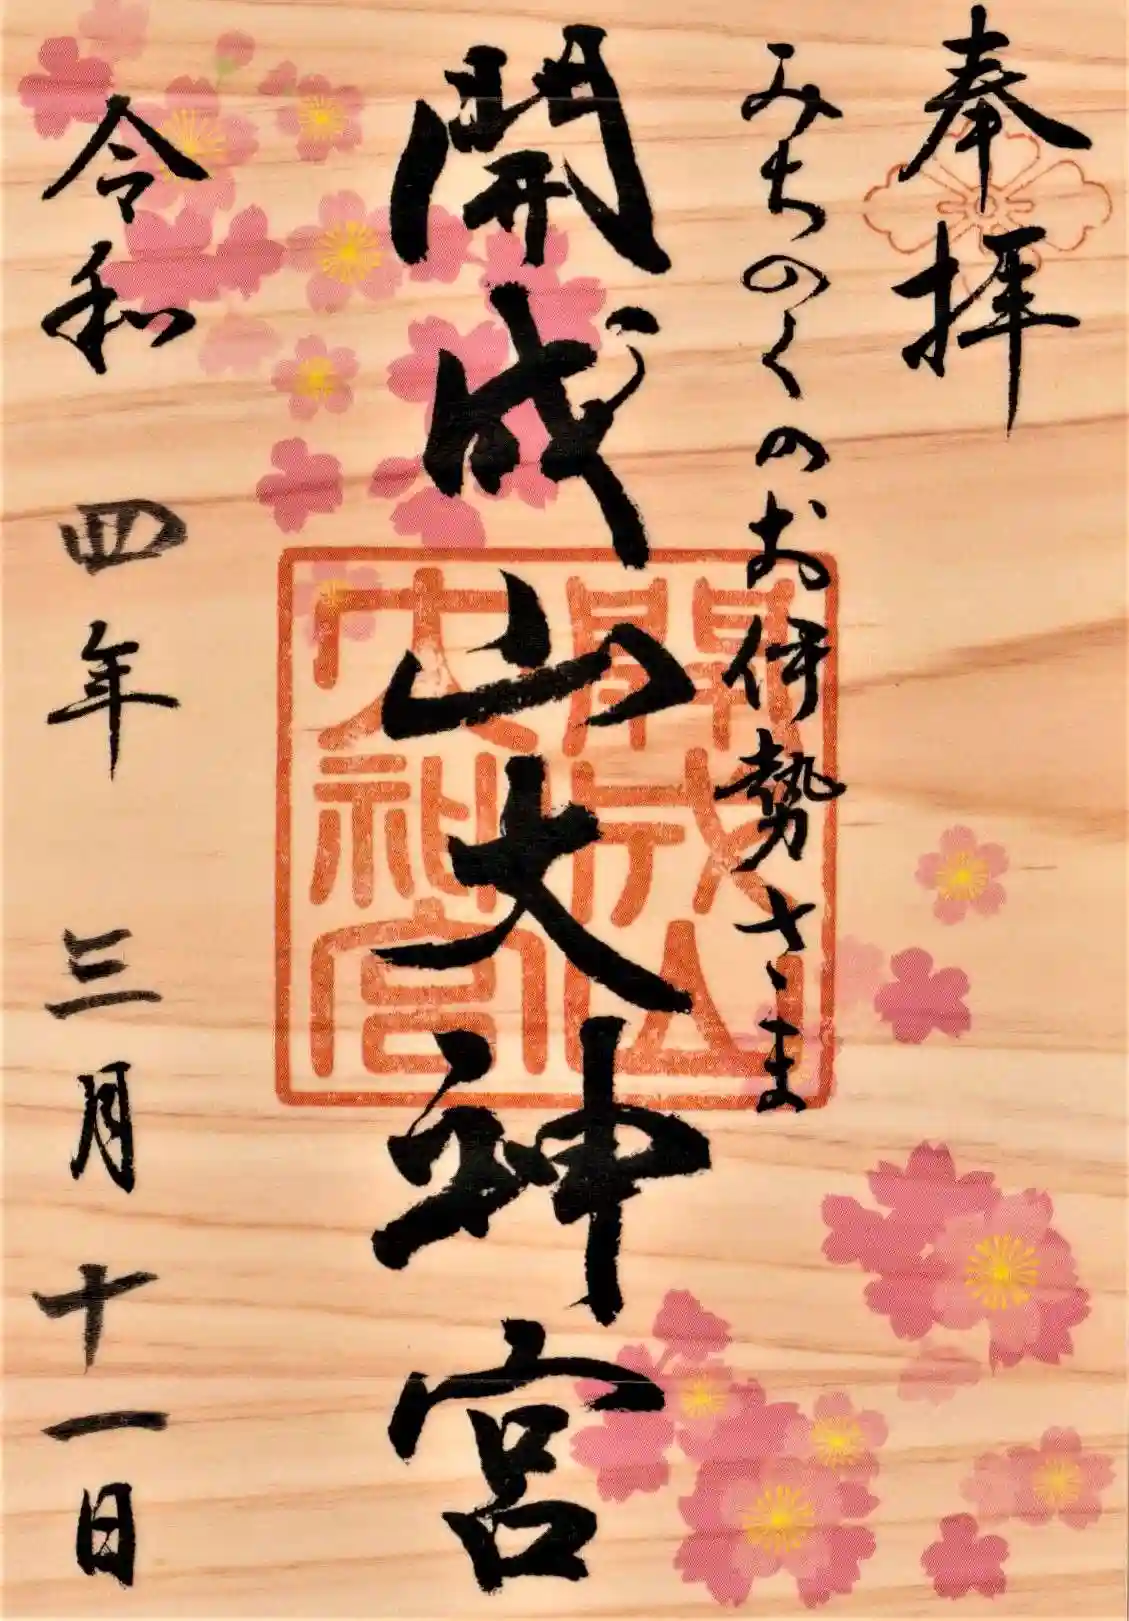 奉拝
みちのくのお伊勢さま
開成山大神宮
開成山
大神宮
令和 四年 三月 十一日